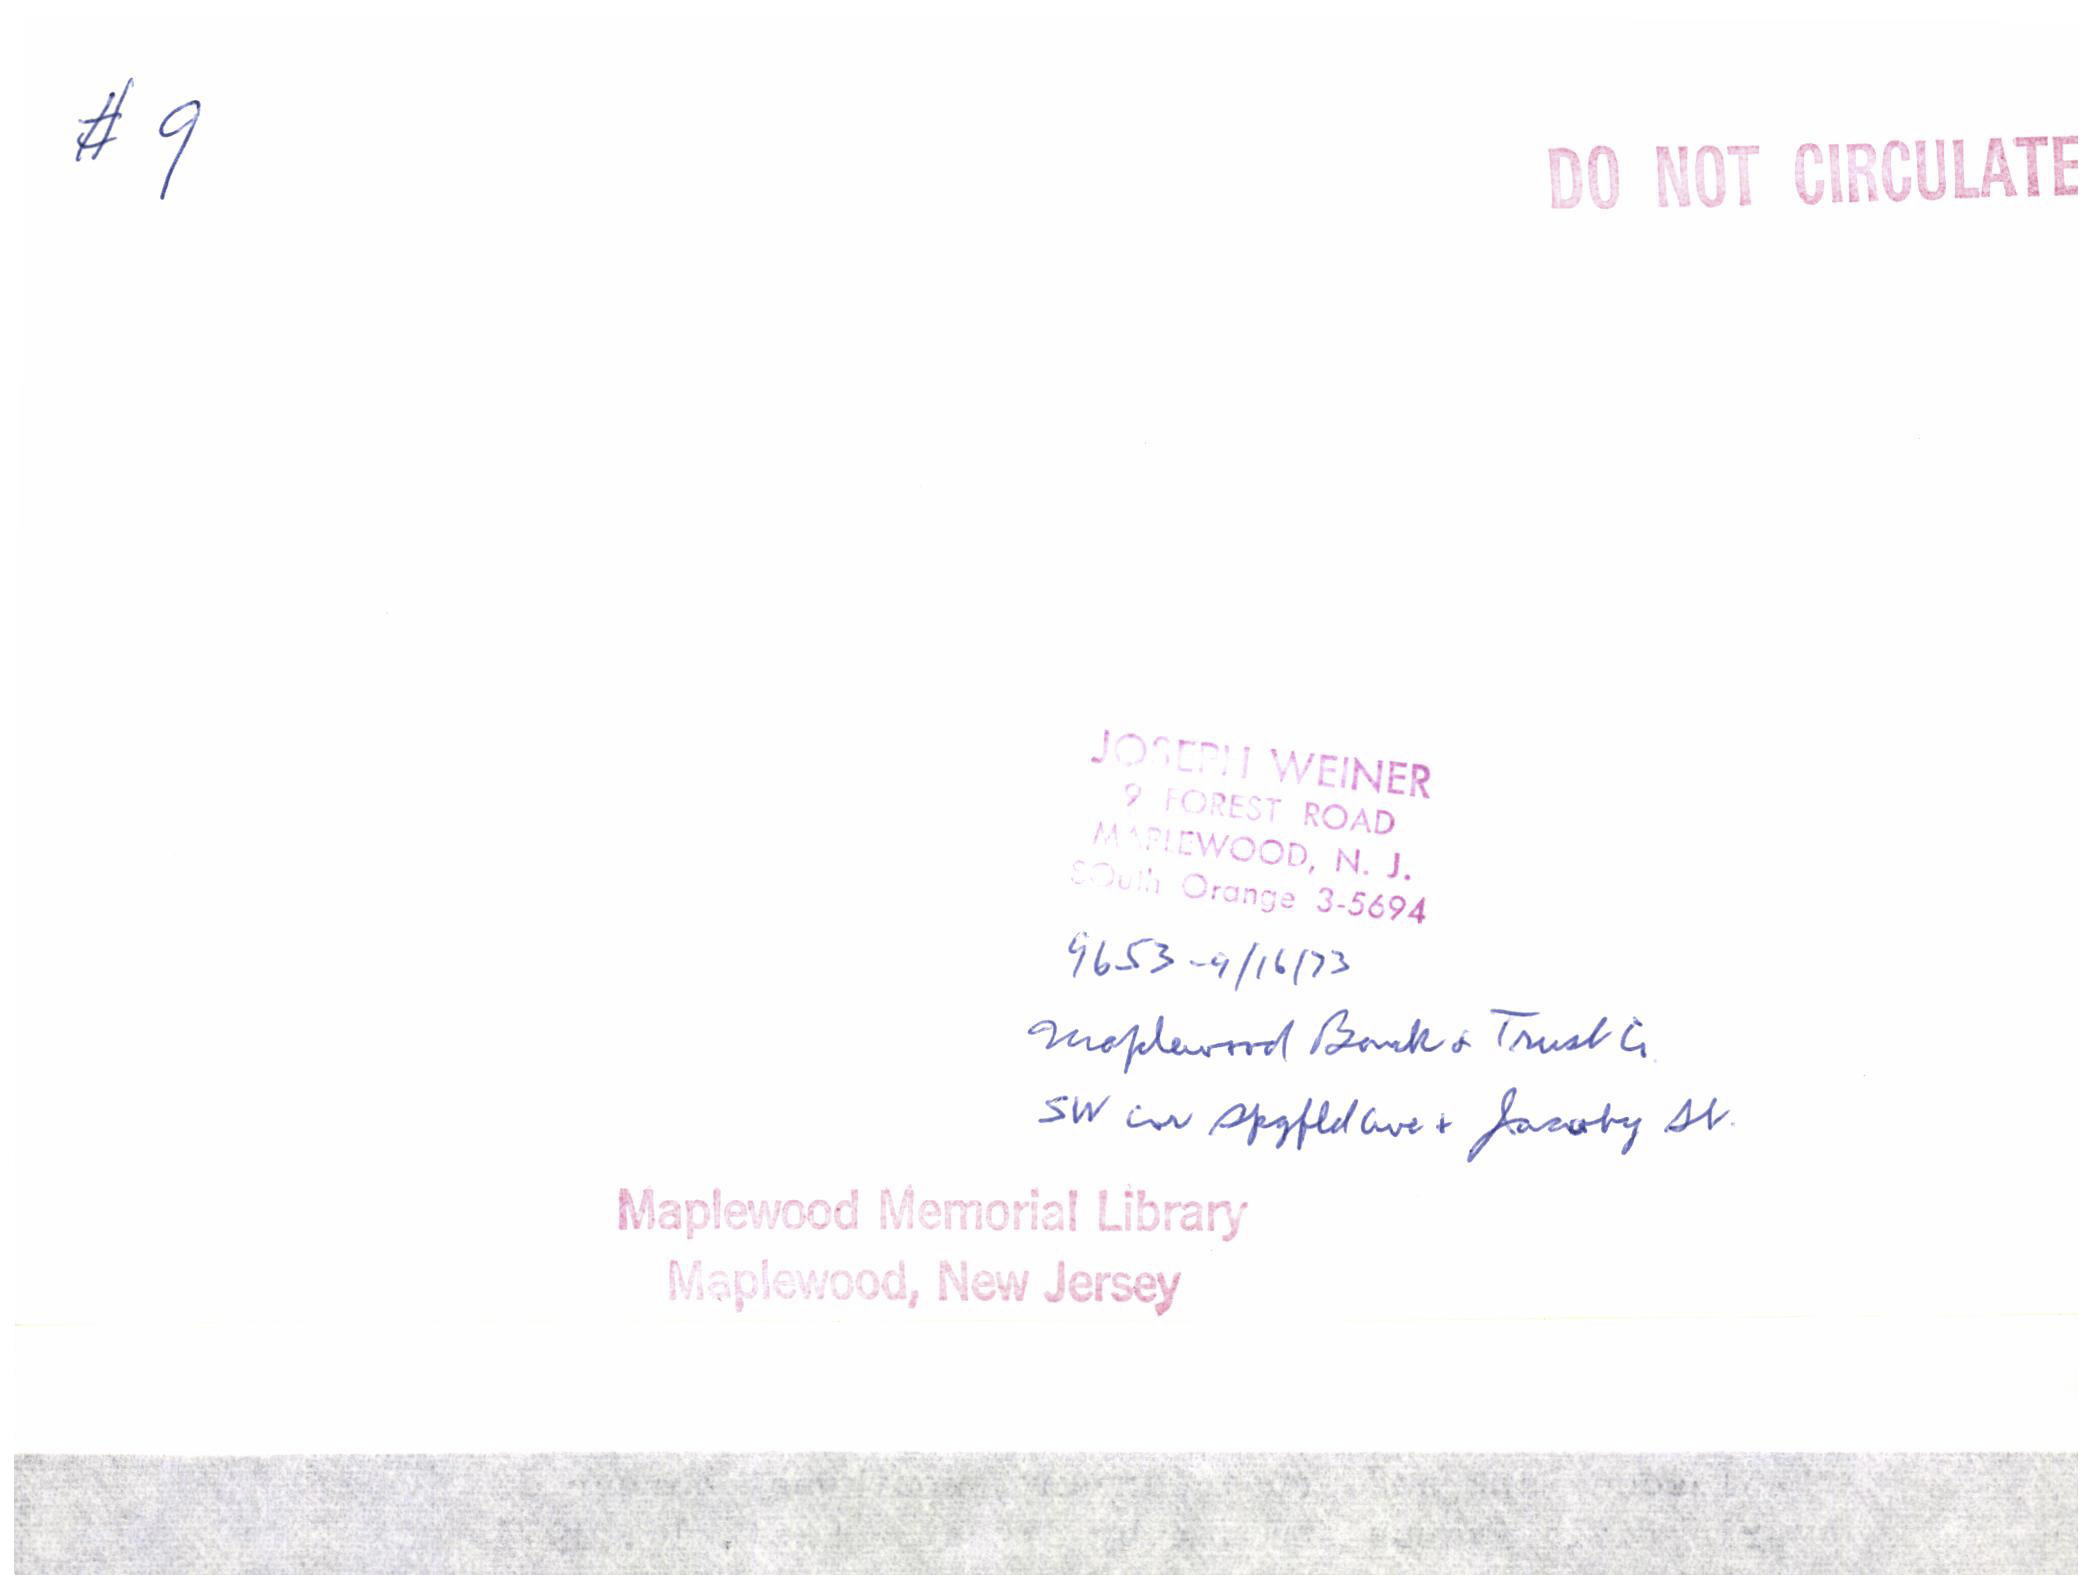 # 9
DO NOT CIRCULATE
JOSEPH WEINER
9 FOREST ROAD
MAPLEWOOD, N. J.
SOuth Orange 3-5694
9653-9/16/73
Maplewood Bank & Trust Co.
SW cor Spgfld Ave + Jacoby St.
Maplewood Memorial Library
Maplewood, New Jersey